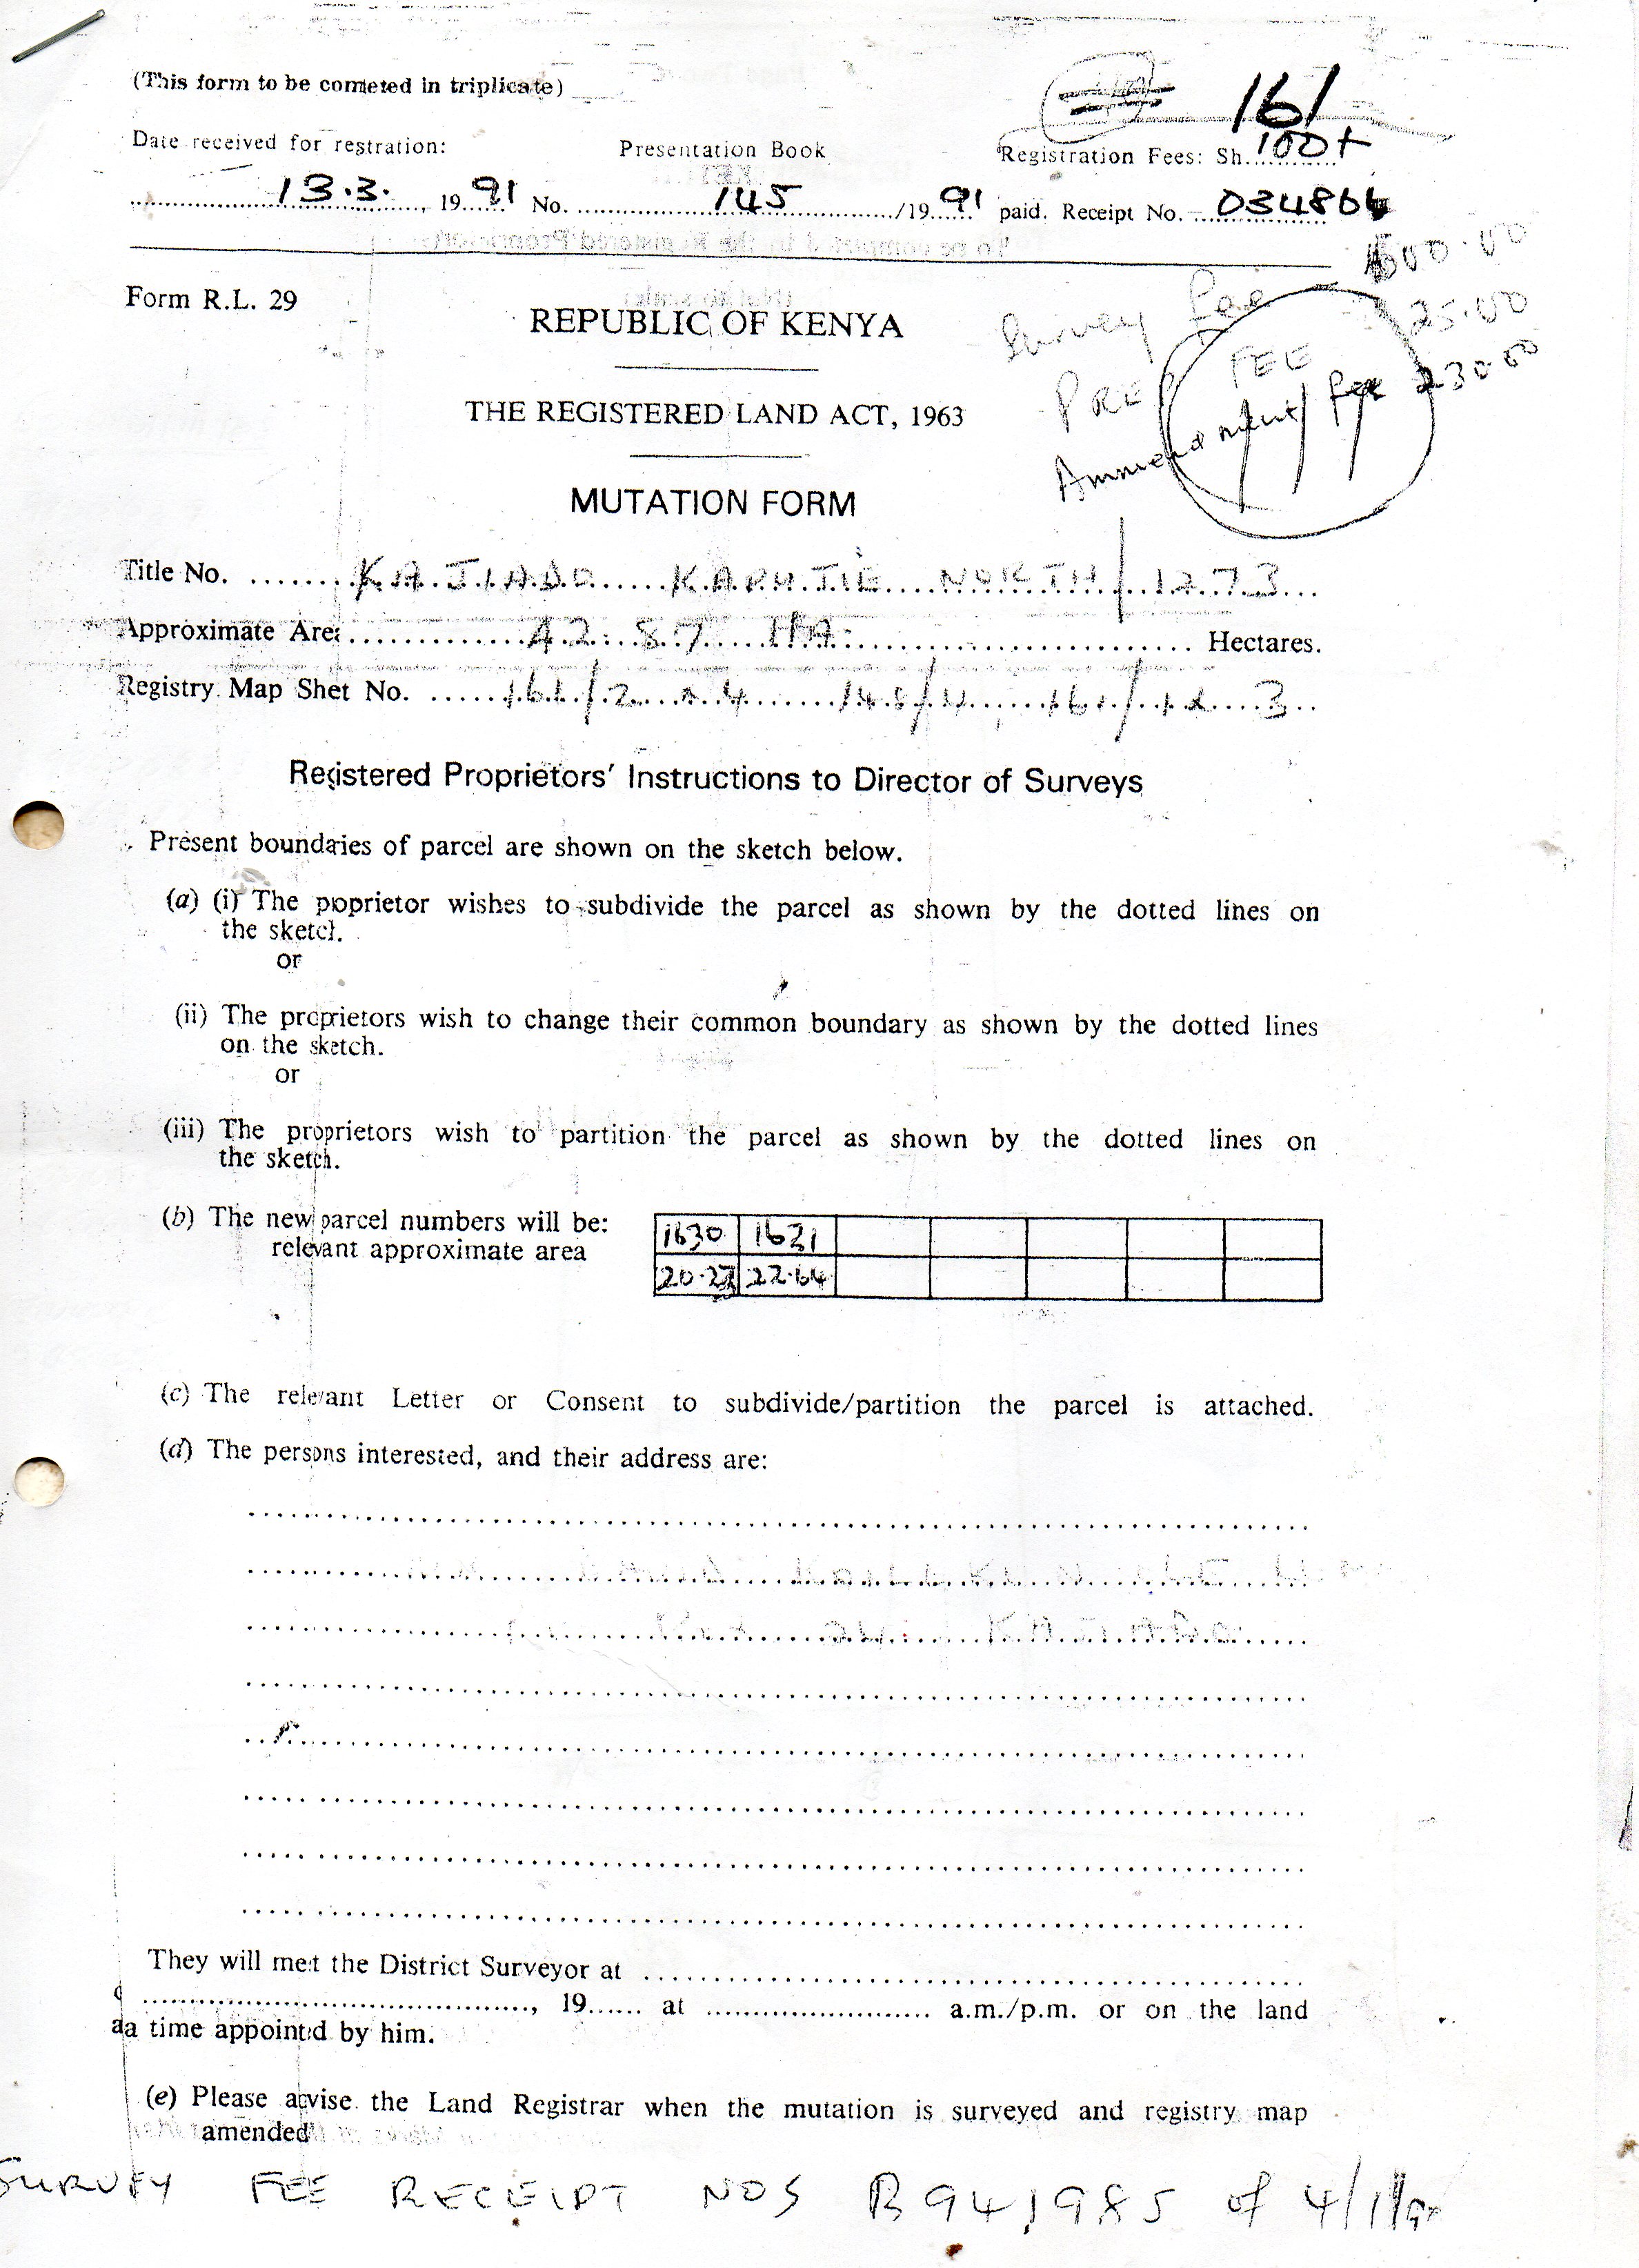 (This form to be comleted in triplicate)
161
Date received for restration:
Presentation Book
Registration Fees: Sh. 100+
13.3. , 19 91 No. 145 /19 91 paid. Receipt No. 034806
Form R.L. 29
600.00
Survey fee
REPUBLIC OF KENYA
25.00
PREP FEE
Ammendment fee 230.00
THE REGISTERED LAND ACT, 1963
MUTATION FORM
Title No. KAJIADO KAPUTIE NORTH / 1273
Approximate Area 42.87 HA. Hectares.
Registry Map Shet No. 161/2 & 4 148/4, 161/1 & 3
Registered Proprietors' Instructions to Director of Surveys
Present boundaries of parcel are shown on the sketch below.
(a) (i) The proprietor wishes to subdivide the parcel as shown by the dotted lines on
the sketch.
or
(ii) The proprietors wish to change their common boundary as shown by the dotted lines
on the sketch.
or
(iii) The proprietors wish to partition the parcel as shown by the dotted lines on
the sketch.
(b) The new parcel numbers will be: 1630 1631
relevant approximate area 20.23 22.64
(c) The relevant Letter or Consent to subdivide/partition the parcel is attached.
(d) The persons interested, and their address are:
They will met the District Surveyor at
, 19...... at a.m./p.m. or on the land
aa time appointd by him.
(e) Please advise the Land Registrar when the mutation is surveyed and registry map
amended
SURVEY FEE RECEIPT NOS B 941985 of 4/1/91